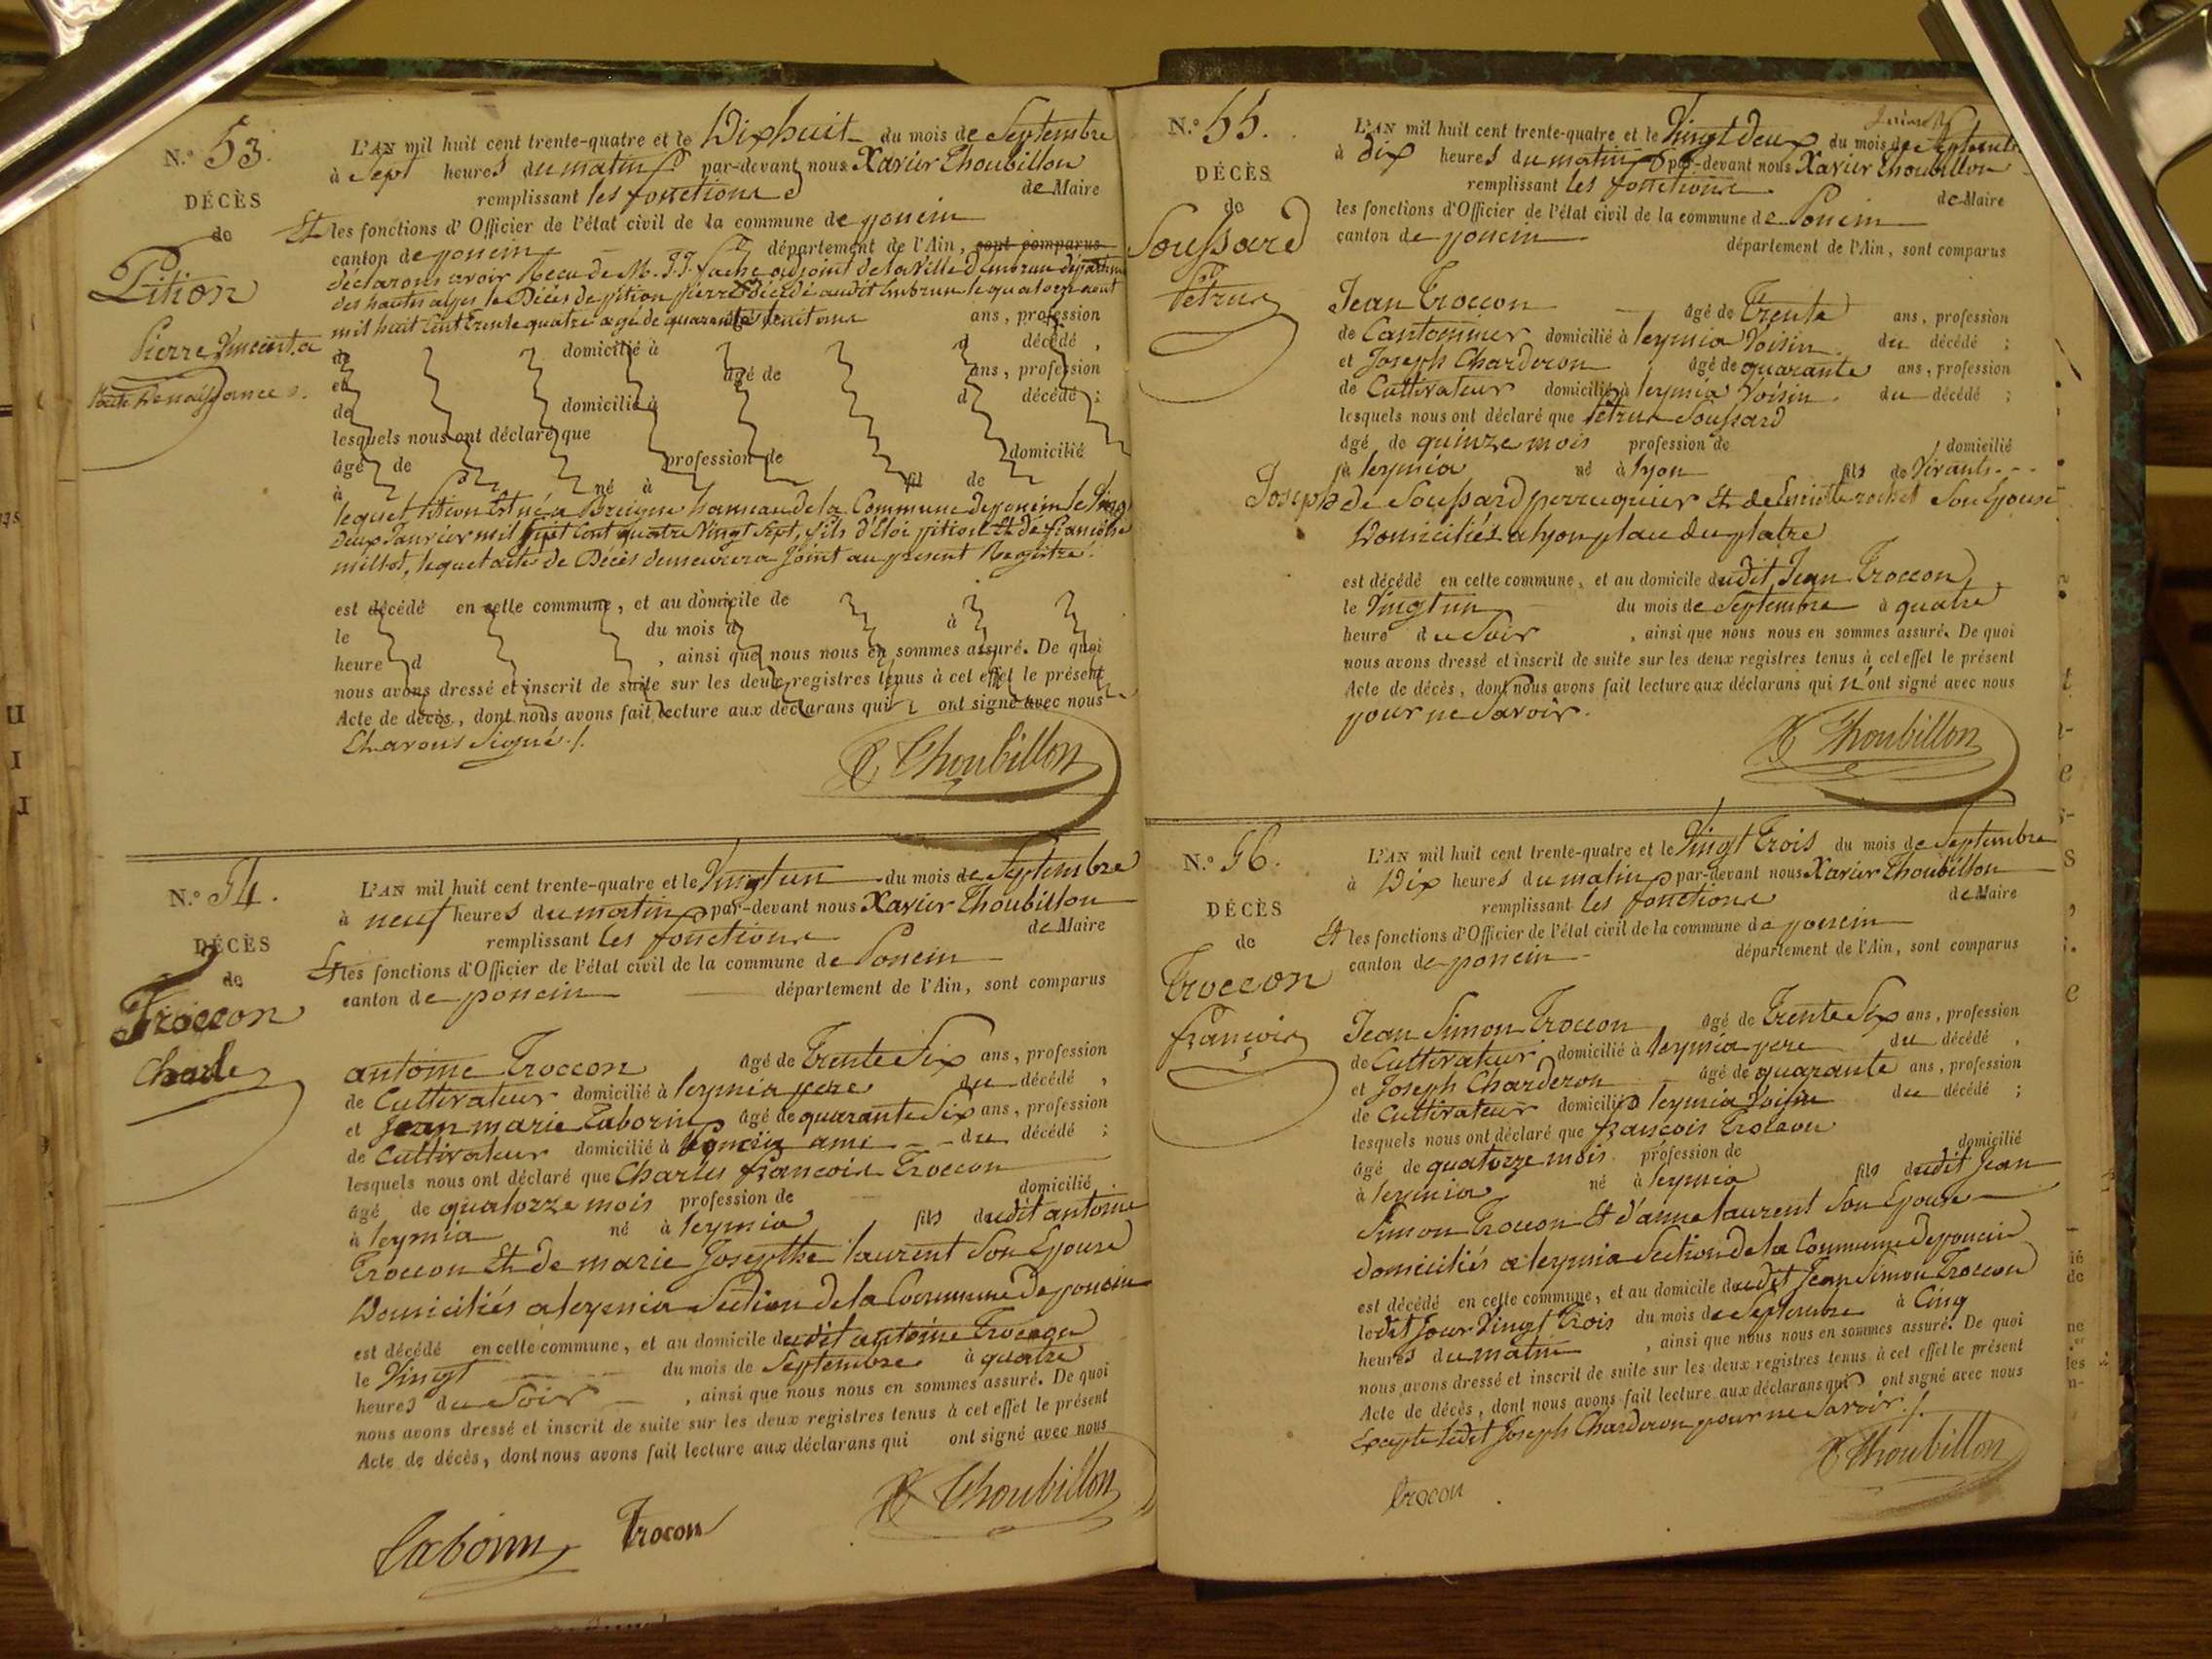 N.° 53.
DÉCÈS
de
Pition
Pierre Vincent
L'AN mil huit cent trente-quatre et le Dix huit du mois de Septembre
à Sept heures du matin par-devant nous Xavier Thoubillon
remplissant les fonctions de Maire
Et les fonctions d'Officier de l'état civil de la commune de poncin
canton de poncin département de l'Ain, sont comparus
déclarons avoir Recu de M. J. J. adjoint de la Ville D'Embrun département
des hautes alpes le Décés de pition pierre décédé audit Embrun le quatorze aout
mil huit Cent Trente quatre agé de quarante huit ans ans, profession
de domicilié à d décédé,
et âgé de ans, profession
de domicilié à d décédé;
lesquels nous ont déclaré que
âgé de profession de domicilié
à né à fil de
lequel pition Est né a Breigne hameau de la Commune de poncin le Vingt
Deux Janvier mil Sept Cent quatre Vingt Sept, fils d'Eloi pition Et de francoise
millet, lequel acte de Décès demeurera Joint au présent Registre.
est décédé en cette commune, et au domicile de
le du mois d à
heure d , ainsi que nous nous en sommes assuré. De quoi
nous avons dressé et inscrit de suite sur les deux registres tenus à cet effet le présent
Acte de décès, dont nous avons fait lecture aux déclarans qui ont signé avec nous
Et avons Signé ./.
X Thoubillon
N.° 54.
DÉCÈS
de
Troccon
Charle
L'AN mil huit cent trente-quatre et le Vingt un du mois de Septembre
à neuf heures du matin par-devant nous Xavier Thoubillon
remplissant les fonctions de Maire
Et les fonctions d'Officier de l'état civil de la commune de Poncin
canton de poncin département de l'Ain, sont comparus
antoine Troccon âgé de Trente Six ans, profession
de Cultivateur domicilié à leymia pere du décédé,
et Jean marie Taborin âgé de quarante Six ans, profession
de Cultivateur domicilié à ami du décédé;
lesquels nous ont déclaré que Charles francois Troccon
âgé de quatorze mois profession de domicilié
à leymia né à leymia fils dudit antoine
Troccon Et de marie Josepthe laurent Son Epouse
Domiciliés a leymia Section de la Commune de poncin
est décédé en cette commune, et au domicile dudit antoine Troccon
le Vingt du mois de Septembre à quatre
heures du Soir , ainsi que nous nous en sommes assuré. De quoi
nous avons dressé et inscrit de suite sur les deux registres tenus à cet effet le présent
Acte de décès, dont nous avons fait lecture aux déclarans qui ont signé avec nous
X Thoubillon
Taborin Trocon
N.° 55.
DÉCÈS
de
Soussard
Pétrus
L'AN mil huit cent trente-quatre et le Vingt Deux du mois de Septembre
à dix heures du matin par-devant nous Xavier Thoubillon
remplissant les fonctions de Maire
les fonctions d'Officier de l'état civil de la commune de Poncin
canton de poncin département de l'Ain, sont comparus
Jean Troccon âgé de Trente ans, profession
de Cantonnier domicilié à leymia Voisin du décédé;
et Joseph Charderon âgé de quarante ans, profession
de Cultivateur domicilié à leymia Voisin du décédé;
lesquels nous ont déclaré que Pétrus Soussard
âgé de quinze mois profession de domicilié
à leymia né à lyon fils de Vivants
Joseph de Soussard perruquier Et de rochet Son Epouse
Domiciliés a lyon place du platre
est décédé en cette commune, et au domicile dudit Jean Troccon
le Vingt un du mois de Septembre à quatre
heure du Soir , ainsi que nous nous en sommes assuré. De quoi
nous avons dressé et inscrit de suite sur les deux registres tenus à cet effet le présent
Acte de décès, dont nous avons fait lecture aux déclarans qui n'ont signé avec nous
pour ne Savoir.
X Thoubillon
N.° 56.
DÉCÈS
de
Troccon
françois
L'AN mil huit cent trente-quatre et le Vingt Trois du mois de Septembre
à Dix heures du matin par-devant nous Xavier Thoubillon
remplissant les fonctions de Maire
Et les fonctions d'Officier de l'état civil de la commune de poncin
canton de poncin département de l'Ain, sont comparus
Jean Simon Troccon âgé de Trente Six ans, profession
de Cultivateur domicilié à leymia pere du décédé,
et Joseph Charderon âgé de quarante ans, profession
de Cultivateur domicilié à leymia Voisin du décédé;
lesquels nous ont déclaré que françois Troccon
âgé de quatorze mois profession de domicilié
à leymia né à leymia fils dudit Jean
Simon Troccon Et d'anne laurent Son Epouse
domiciliés a leymia Section de la Commune de poncin
est décédé en cette commune, et au domicile dudit Jean Simon Troccon
ledit Jour Vingt Trois du mois de Septembre à Cinq
heures du matin , ainsi que nous nous en sommes assuré. De quoi
nous avons dressé et inscrit de suite sur les deux registres tenus à cet effet le présent
Acte de décès, dont nous avons fait lecture aux déclarans qui ont signé avec nous
Excepté ledit Joseph Charderon pour ne Savoir ./.
X Thoubillon
Trocon